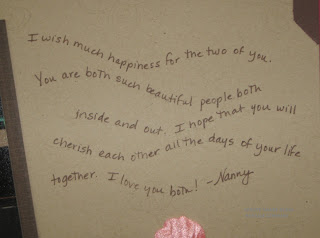 I wish much happiness for the two of you.
You are both such beautiful people both
inside and out. I hope that you will
cherish each other all the days of your life
together. I love you both! -Nanny